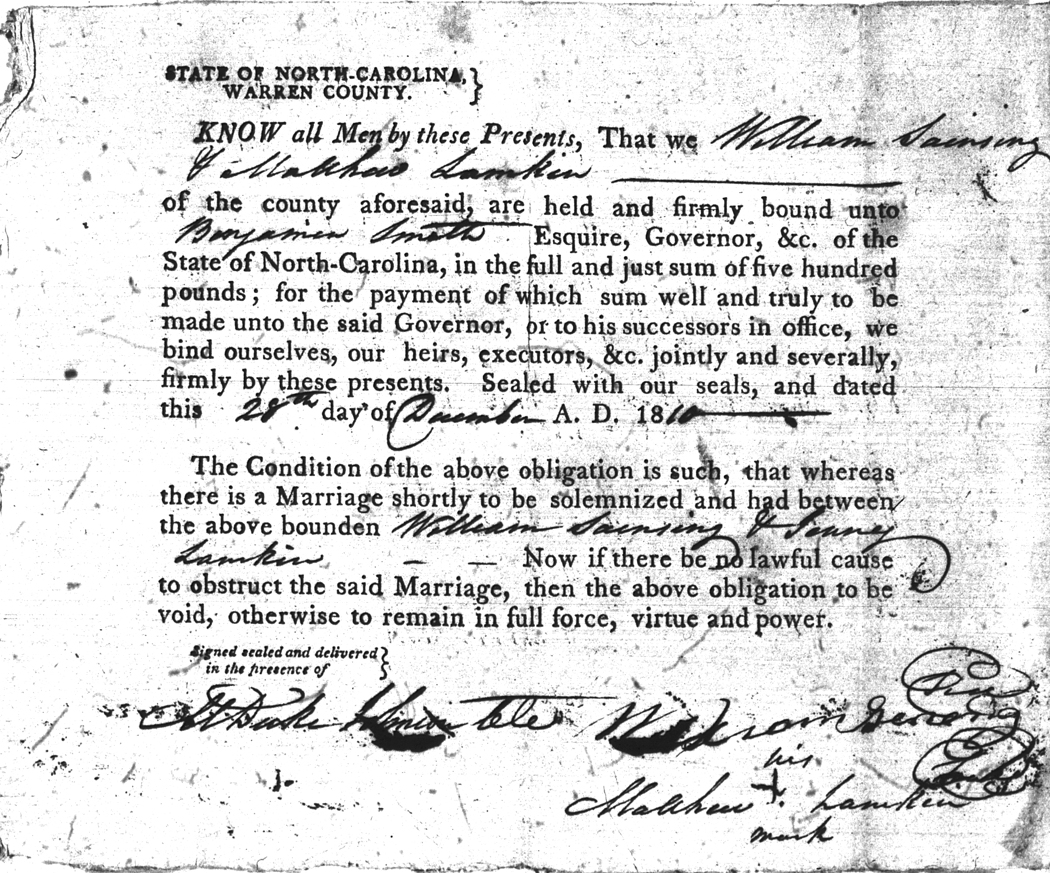 STATE OF NORTH-CAROLINA, }
WARREN COUNTY.
KNOW all Men by these Presents, That we William Sainsing
& Matthew Lamkin
of the county aforesaid, are held and firmly bound unto
Benjamin Smith Esquire, Governor, &c. of the
State of North-Carolina, in the full and just sum of five hundred
pounds; for the payment of which sum well and truly to be
made unto the said Governor, or to his successors in office, we
bind ourselves, our heirs, executors, &c. jointly and severally,
firmly by these presents. Sealed with our seals, and dated
this 28th day of December A. D. 1810
The Condition of the above obligation is such, that whereas
there is a Marriage shortly to be solemnized and had between
the above bounden William Sainsing &
Lamkin — — Now if there be no lawful cause
to obstruct the said Marriage, then the above obligation to be
void, otherwise to remain in full force, virtue and power.
Signed sealed and delivered }
in the presence of
Johnson
his
Matthew + Lamkin
mark